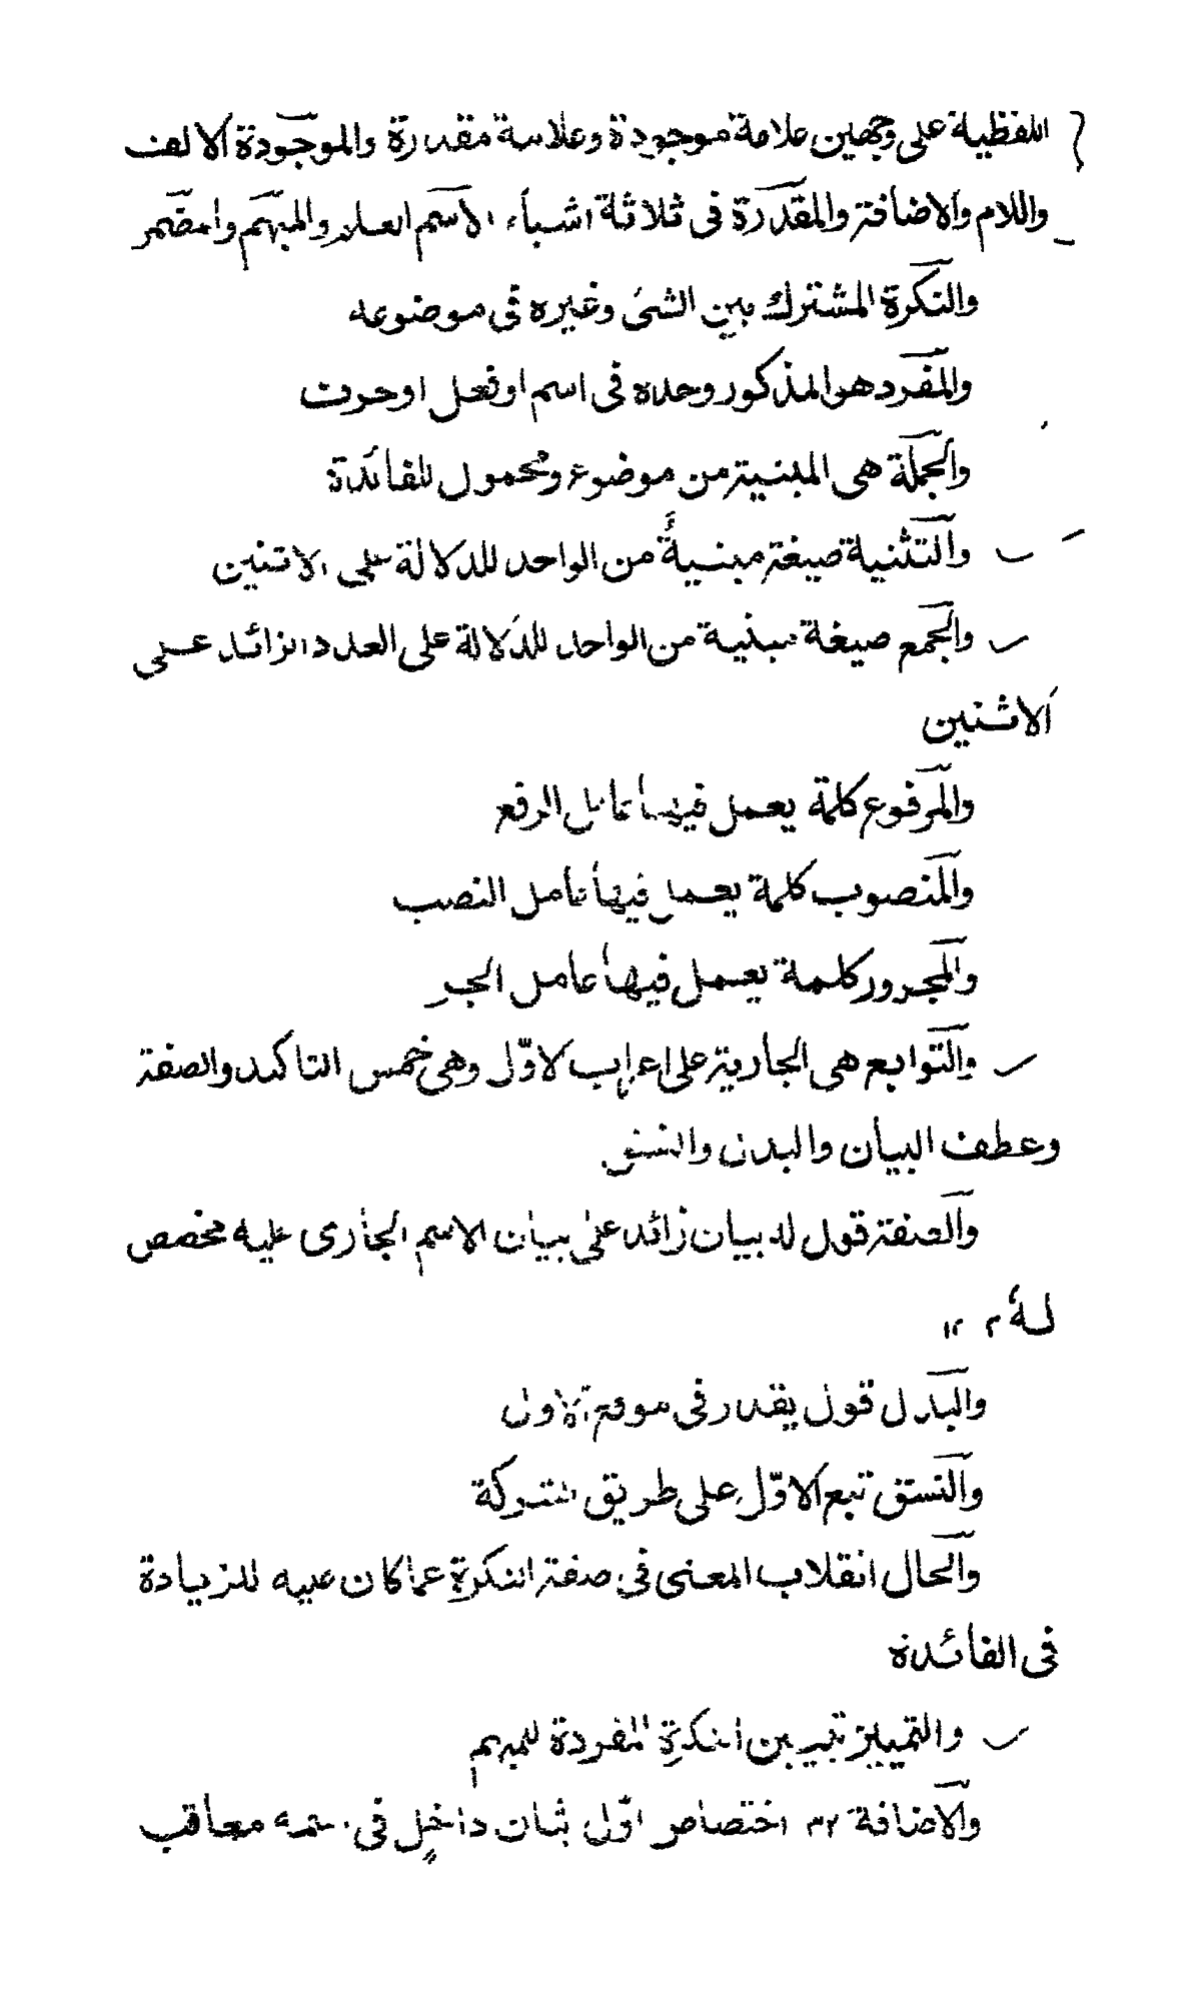 اللفظية على وجهين علامة موجودة وعلامة مقدرة والموجودة الالف
واللام والاضافة والمقدرة فى ثلاثة اشياء الاسم العلم والمبهم والمضمر
والنكرة المشترك بين الشئ وغيره فى موضوعه
والمفرد هو المذكور وحده فى اسم او فعل او حرف
والجملة هى المبنية من موضوع ومحمول للفائدة
والتثنية صيغة مبنية من الواحد للدلالة على الاثنين
والجمع صيغة مبنية من الواحد للدلالة على العدد الزائد على
الاثنين
والمرفوع كلمة يعمل فيها عامل الرفع
والمنصوب كلمة يعمل فيها عامل النصب
والمجرور كلمة يعمل فيها عامل الجر
والتوابع هى الجارية على اعراب الاوّل وهى خمس التاكيد والصفة
وعطف البيان والبدل والنسق
والصفة قول له بيان زائد على بيان الاسم الجارى عليه مخصص
له
والبدل قول يقدر فى موقع الاول
والنسق تبع الاوّل على طريق الشركة
والحال انقلاب المعنى فى صفة النكرة عما كان عليه للزيادة
فى الفائدة
والتمييز تبيين النكرة المفردة للمبهم
والاضافة ٣٢ اختصاص اوّل بثان داخل فى معاقب